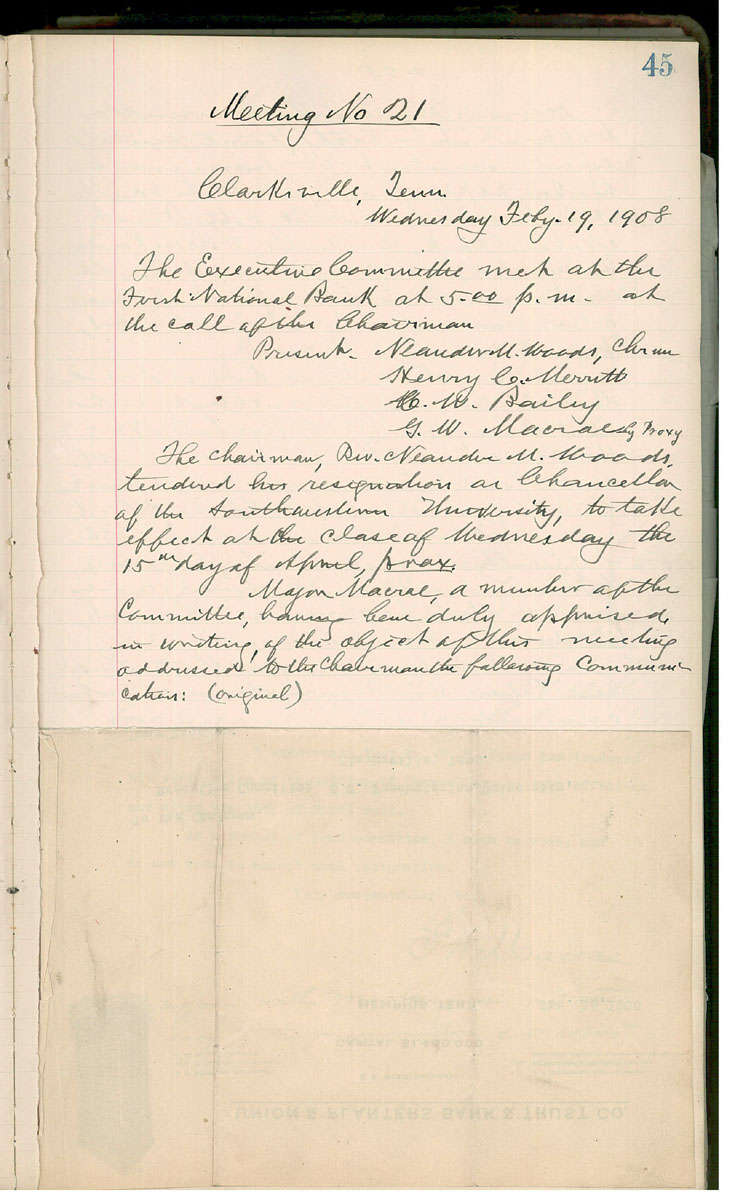 45
Meeting No 21
Clarksville, Tenn.
Wednesday Feby. 19, 1908
The Executive Committee met at the
First National Bank at 5.00 p.m. at
the call of the Chairman
Present. Neander M. Woods, Chrmn
Henry C. Merritt
C. W. Bailey
G. W. Macrae by Proxy
The Chairman, Rev. Neander M. Woods,
tendered his resignation as Chancellor
of the Southwestern University, to take
effect at the close of Wednesday the
15th day of April, prox.
Major Macrae, a member of the
Committee, having been duly apprised,
in writing, of the object of this meeting
addressed to the Chairman the following Communi-
cation: (original)
UNION & PLANTERS BANK & TRUST CO.
MEMPHIS, TENN.